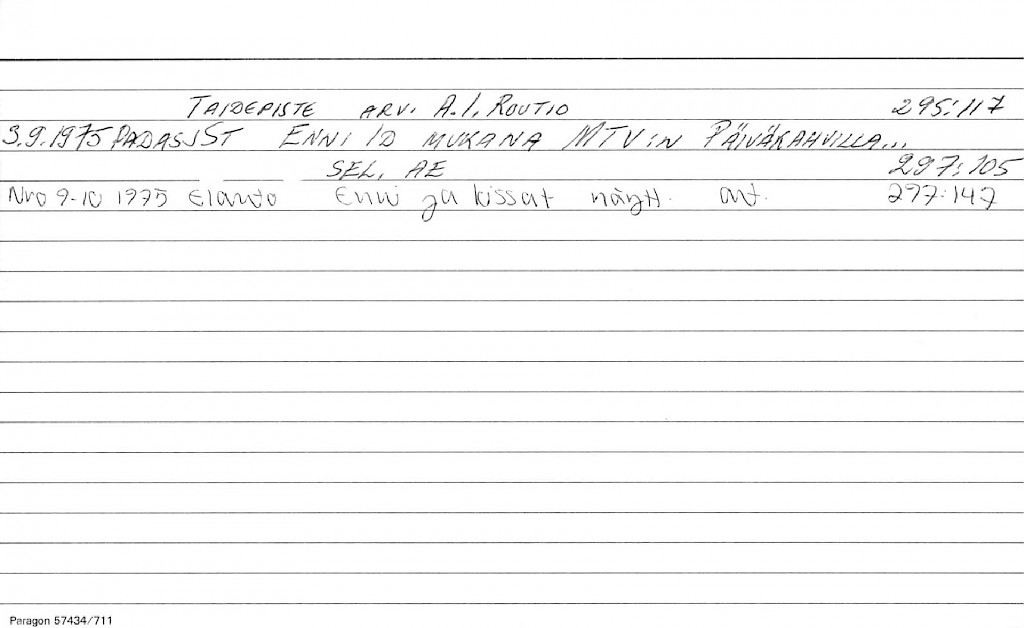 TAIDEPISTE ARV. A.I. ROUTIO 295:117
3.9.1975 PADASJST ENNI ID MUKANA MTV:N PÄIVÄKAHVILLA...
SEL, AE 297:105
Nro 9-10 1975 Elanto Enni ja kissat näytt. art. 297:147
Paragon 57434/711